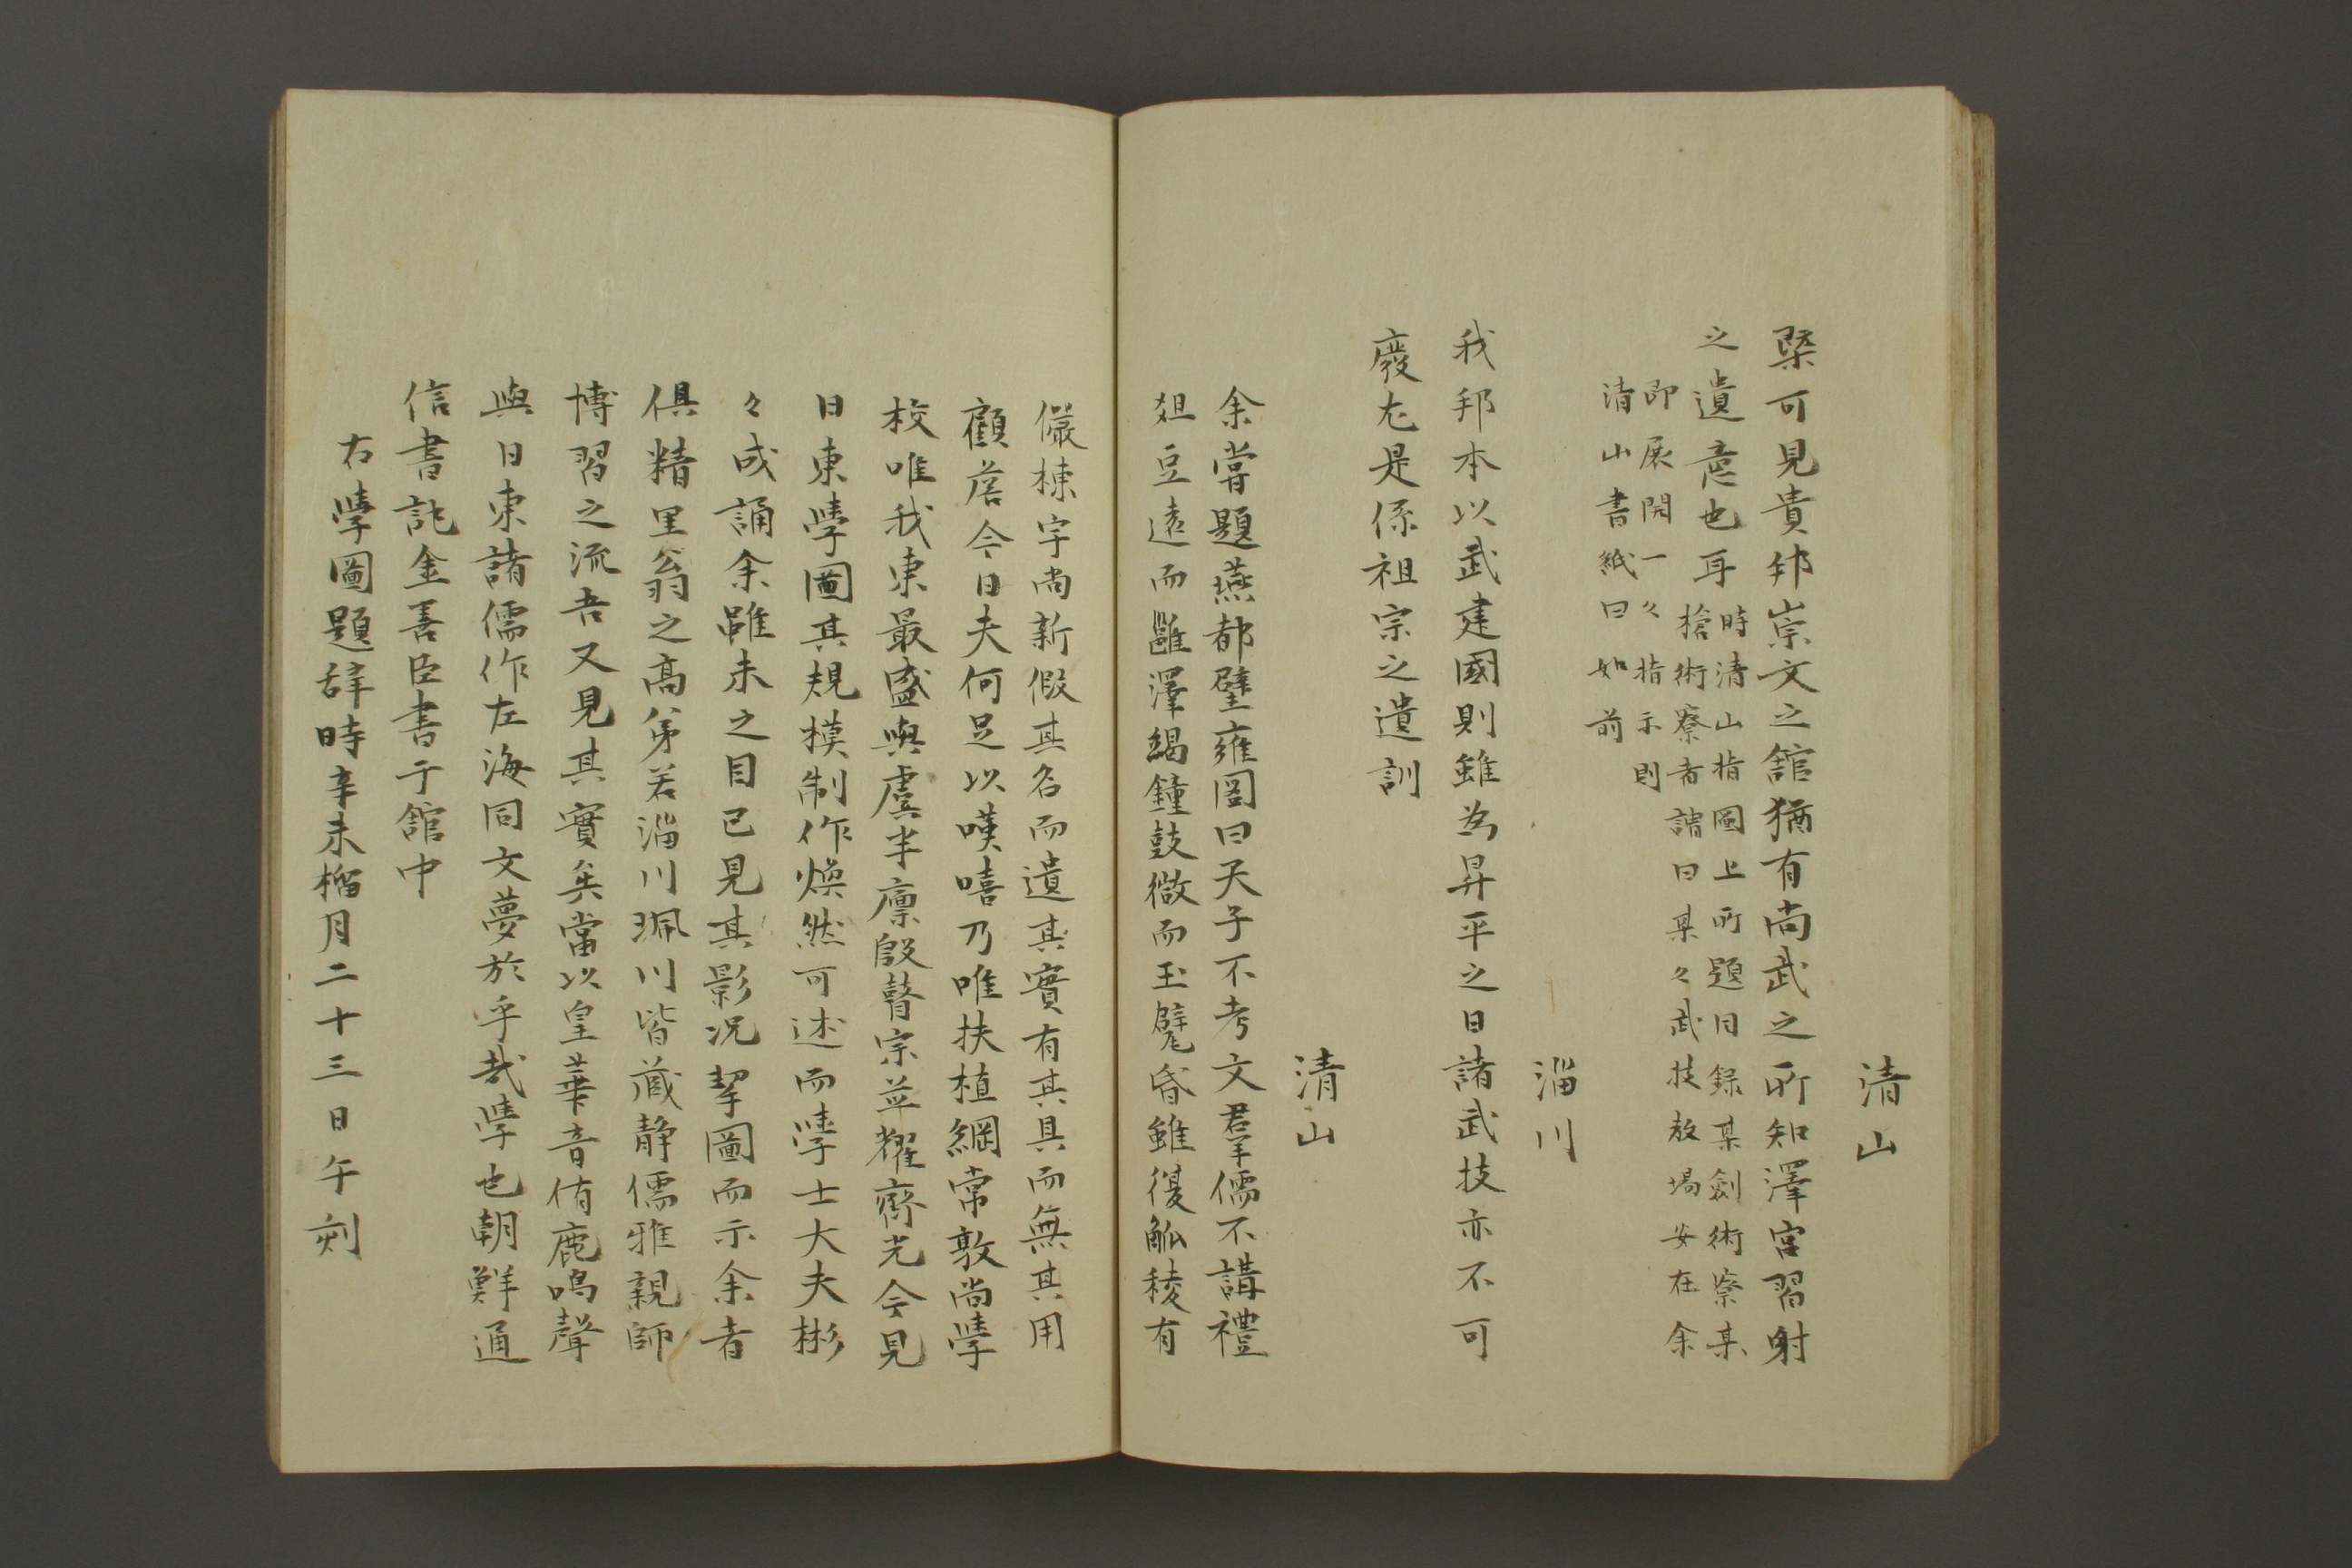 清山
槩可見貴邦崇文之舘猶有尚武之所知澤宮習射
之遺意也耳
時清山指圖上所題目錄某劍術寮某
槍術寮者請曰某々武技敎場安在余
即展開一々指示則
清山書紙曰如前
淄川
我邦本以武建國則雖為昇平之日諸武技亦不可
廢尤是係祖宗之遺訓
清山
余嘗題燕都璧雍圖曰天子不考文羣儒不講禮
俎豆遠而雝澤縐鐘鼓微而玉躄昏雖復觚稜有
儼棟宇尚新假其名而遺其實有其具而無其用
顧茖今日夫何足以嘆嘻乃唯扶植綱常敦尚學
校唯我東最盛與虞半廩殷瞽宗並耀齊光今見
日東學圖其規模制作煥然可述而學士大夫彬
々成誦余雖未之目已見其影况挈圖而示余者
俱精里翁之高弟若淄川珮川皆藏靜儒雅親師
博習之流吾又見其實矣當以皇華音侑鹿鳴聲
與日東諸儒作左海同文夢於乎哉學也朝鮮通
信書記金善臣書于舘中
右學圖題辞時辛未榴月二十三日午刻